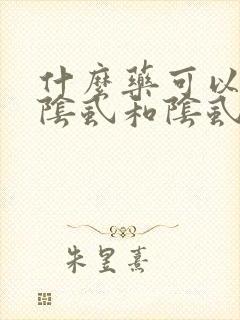 什麼藥可以
陰虱和陰虱
朱昱熹